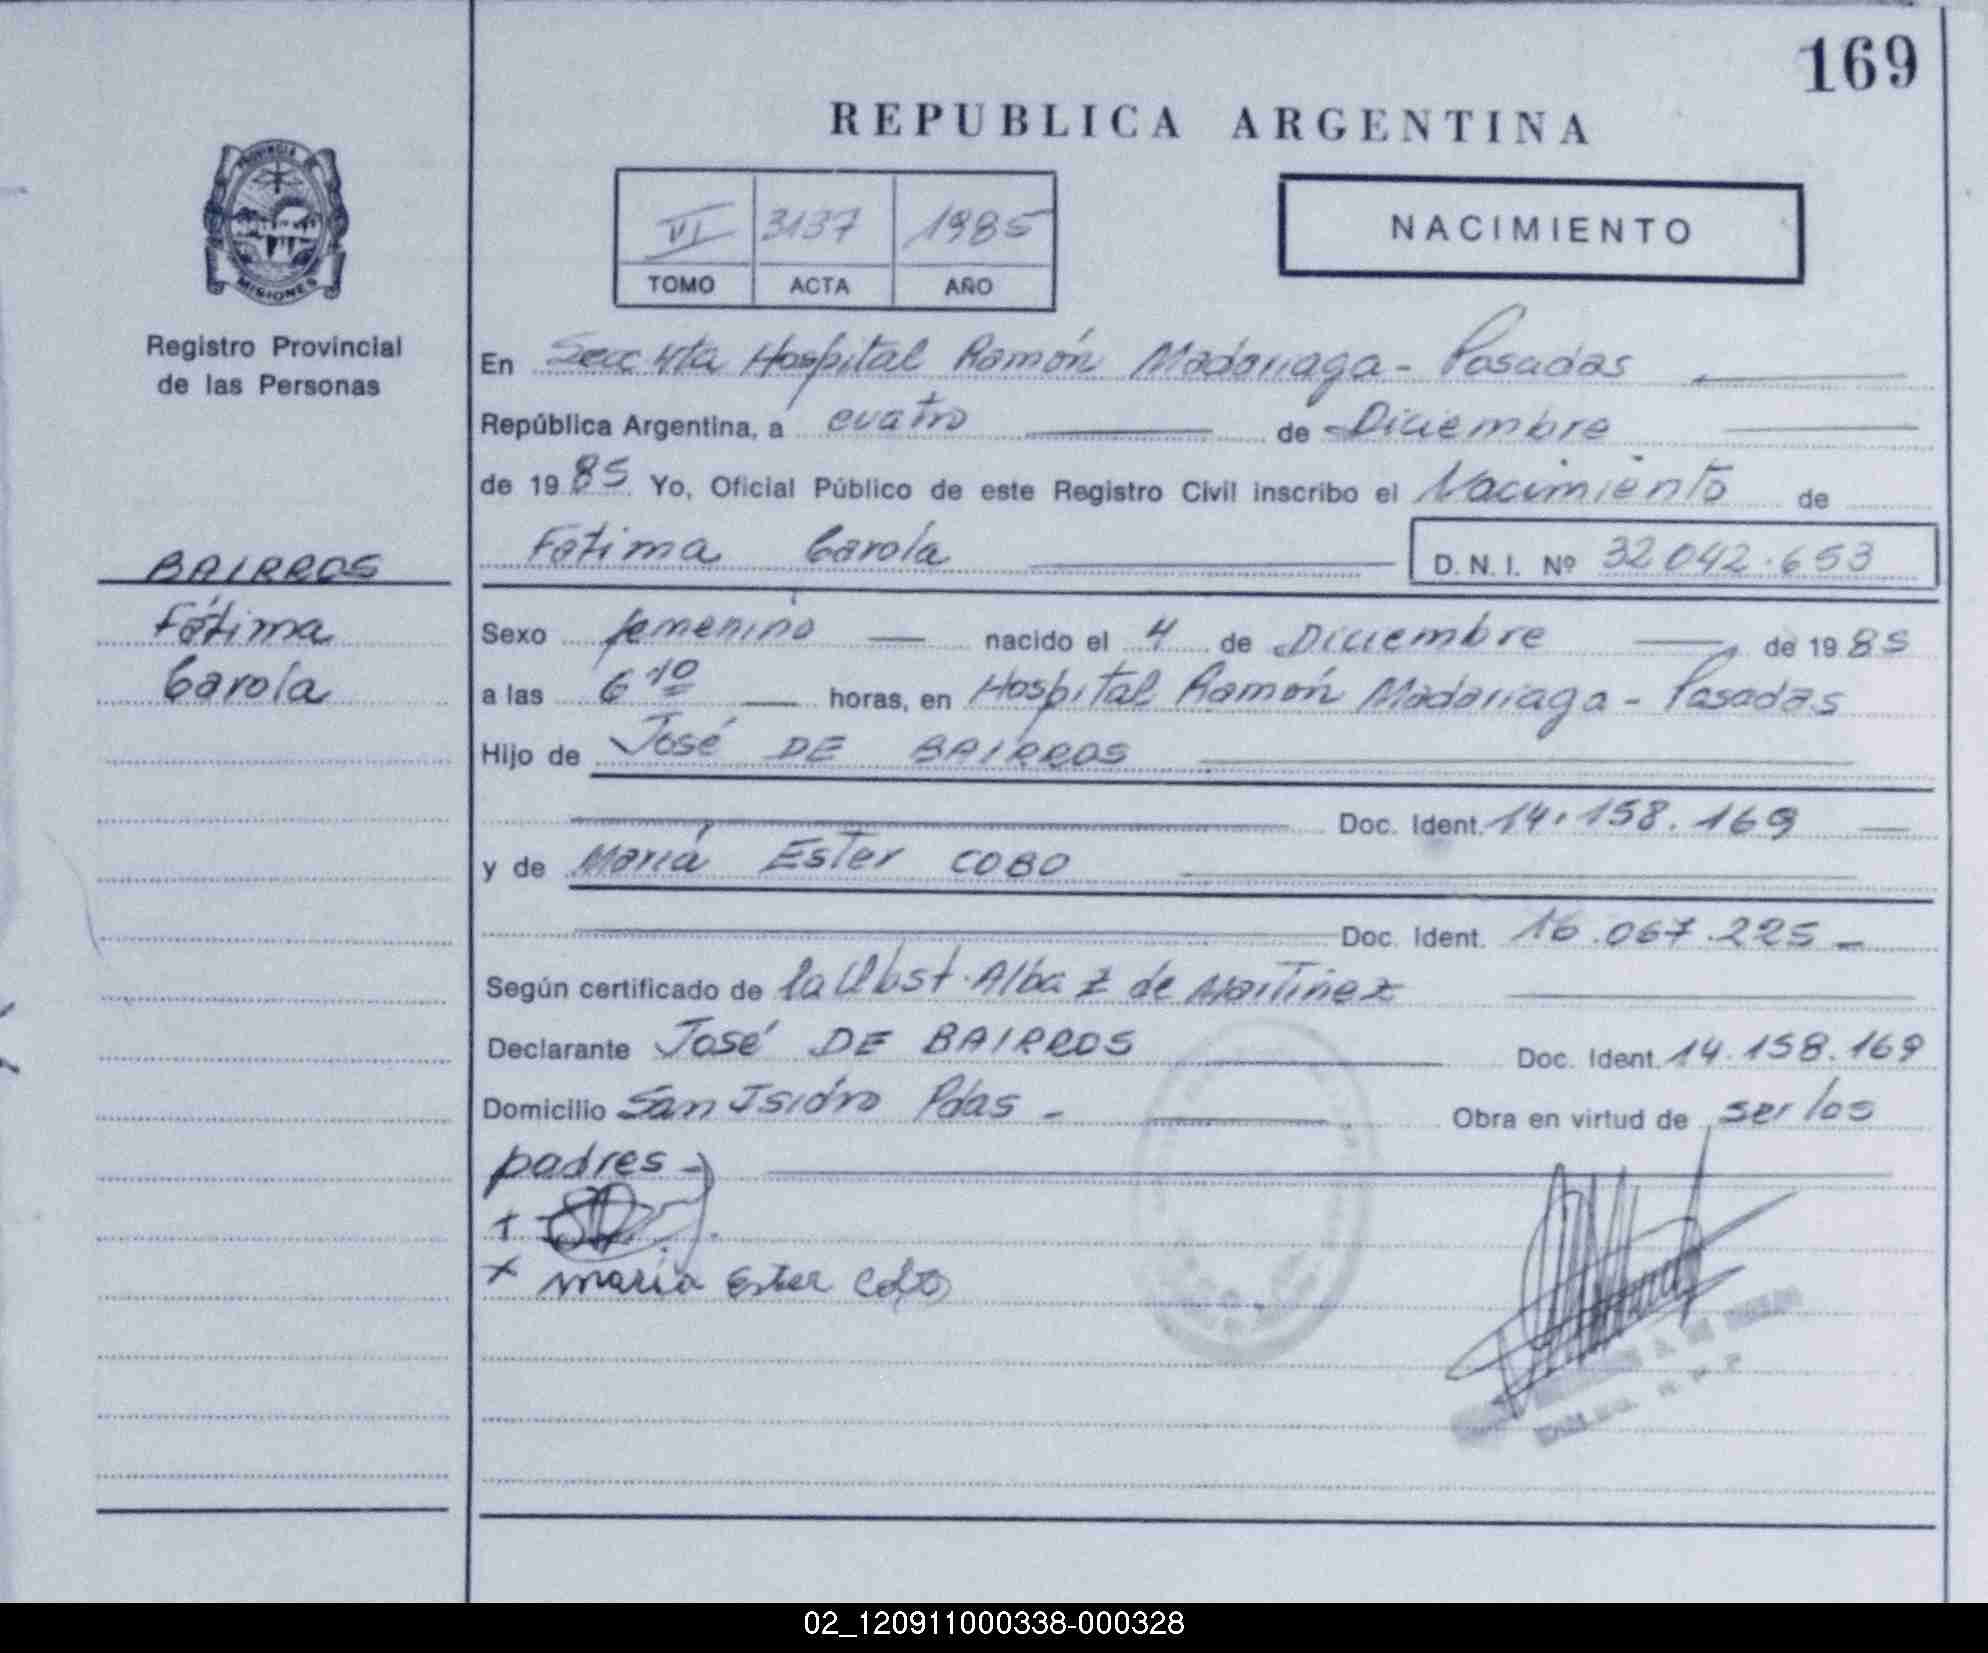 169
REPUBLICA ARGENTINA
VI 3137 1985
TOMO ACTA AÑO
NACIMIENTO
PROVINCIA DE
MISIONES
Registro Provincial
de las Personas
BAIRROS
Fátima
Carola
En Secc 4ta Hospital Ramón Madariaga - Posadas
República Argentina, a cuatro de Diciembre
de 1985. Yo, Oficial Público de este Registro Civil inscribo el Nacimiento de
Fatima Carola D. N. I. Nº 32042.653
Sexo femenino nacido el 4 de Diciembre de 1985
a las 6 10 horas, en Hospital Ramón Madariaga - Posadas
Hijo de José DE BAIRROS
Doc. Ident. 14.158.169
y de María Ester COBO
Doc. Ident. 16.067.225 -
Según certificado de la Obst. Alba Z de Martinez
Declarante José DE BAIRROS Doc. Ident. 14.158.169
Domicilio San Isidro Pdas - Obra en virtud de ser los
padres -
x maria Ester Cobo
02_120911000338-000328